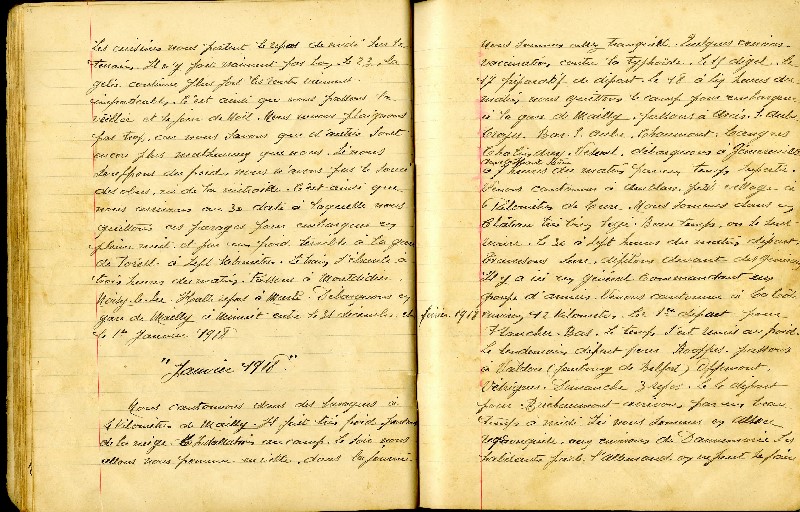 Les cuisines nous portent le repas de midi sur le
terrain. Il n'y fait vraiment pas bon. Le 23. La
gelée continue plus fort les routes
impraticables. C'est ainsi que nous passons la
veillée et le jour de Noël. Nous ne nous plaignons
pas trop, car nous savons que d'autres sont
encore plus malheureux que nous. Si nous
souffrons du froid, nous n'avons pas le souci
des obus, ni de la mitraille. C'est ainsi que
nous arrivons au 30 date à laquelle nous
quittons ces parages pour embarquer en
pleine nuit et par un froid terrible à la gare
de à sept kilomètres. Le train s'ébranle à
trois heures du matin. Passons à Montdidier.
Noisy-le-Sec. Halte repas à Débarquons en
gare de Mailly à minuit entre le 31 décembre et
le 1er Janvier 1918
"Janvier 1918."
Nous cantonnons dans des baraques à
4 kilomètres de Mailly. Il fait très froid
de la neige. Installation au camp. Le soir nous
allons nous promener en ville, dans la journée
nous sommes assez tranquilles. Quelques
vaccination contre la typhoïde. Le 15 dégel. Le
17 préparatif de départ. Le 18 à 10 heures du
matin nous quittons le camp pour embarquer
à la gare de Mailly. Passons à Arcis. S. Aube.
Troyes. Bar. S. Aube. Chaumont. Langres
Chalindrey. Vesoul, débarquons à
à 7 heures du matin par un temps superbe.
Venons cantonner à petit village à
6 kilomètres de Lure. Nous sommes dans un
Château très bien logés. Beau temps, on se
Le 30 à sept heures du matin départ.
Traversons Lure, défilons devant des généraux
Il y a ici un général Commandant un
groupe d'armées. Venons cantonner à La Côte
environ 12 kilomètres. Le 1er départ pour
février 1918
Plancher-Bas. Le temps s'est remis au froid.
Le lendemain départ pour Roppe. passons
à Valdoie (faubourg de Belfort) Offemont.
Vétrigne. Dimanche 3 repos. Le 4 départ
pour Bréchaumont arrivons par un beau
temps à midi. Ici nous sommes en Alsace
reconquise, aux environs de Dannemarie. Les
habitants parlent l'Allemand on ne peut se faire